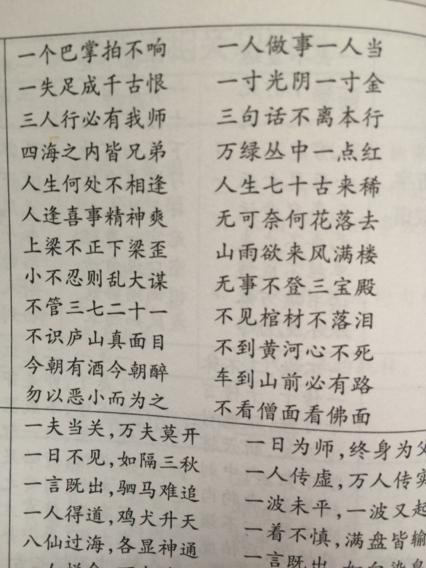 一个巴掌拍不响
一失足成千古恨
三人行必有我师
四海之内皆兄弟
人生何处不相逢
人逢喜事精神爽
上梁不正下梁歪
小不忍则乱大谋
不管三七二十一
不识庐山真面目
今朝有酒今朝醉
勿以恶小而为之
一人做事一人当
一寸光阴一寸金
三句话不离本行
万绿丛中一点红
人生七十古来稀
无可奈何花落去
山雨欲来风满楼
无事不登三宝殿
不见棺材不落泪
不到黄河心不死
车到山前必有路
不看僧面看佛面
一夫当关，万夫莫开
一日不见，如隔三秋
一言既出，驷马难追
一人得道，鸡犬升天
八仙过海，各显神通
一日为师，终身为父
一人传虚，万人传实
一波未平，一波又起
一着不慎，满盘皆输
一言既出